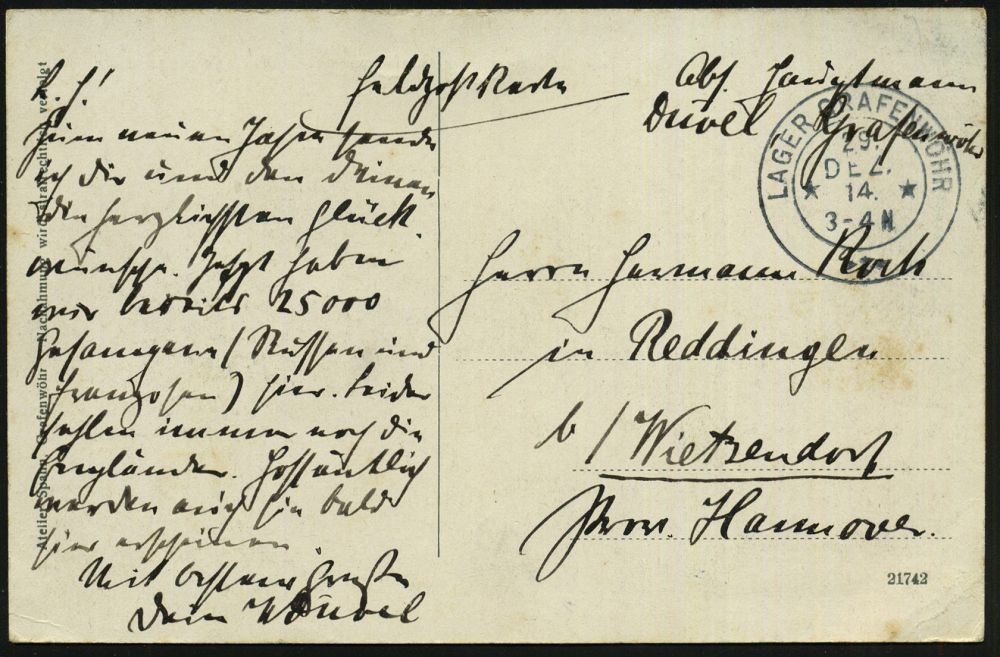 Feldpostkarte
Abs. Hauptmann
Düvel Grafenwöhr
LAGER GRAFENWÖHR
29.
DEZ.
14.
3-4 N
L. H.!
Zum neuen Jahre sende
ich Dir und den Deinen
die herzlichsten Glück
wünsche. Jetzt haben
wir bereits 25000
Gefangene (Russen und
Franzosen) hier. Leider
fehlen immer noch die
Engländer. Hoffentlich
werden auch sie bald
hier erscheinen.
Mit besten Grüßen
Dein Düvel
Herrn Hermann Koch
in Reddingen
b/Wietzendorf
Prov. Hannover.
21742
Atelier Spahn, Grafenwöhr Nachahmung wird strafrechtlich verfolgt